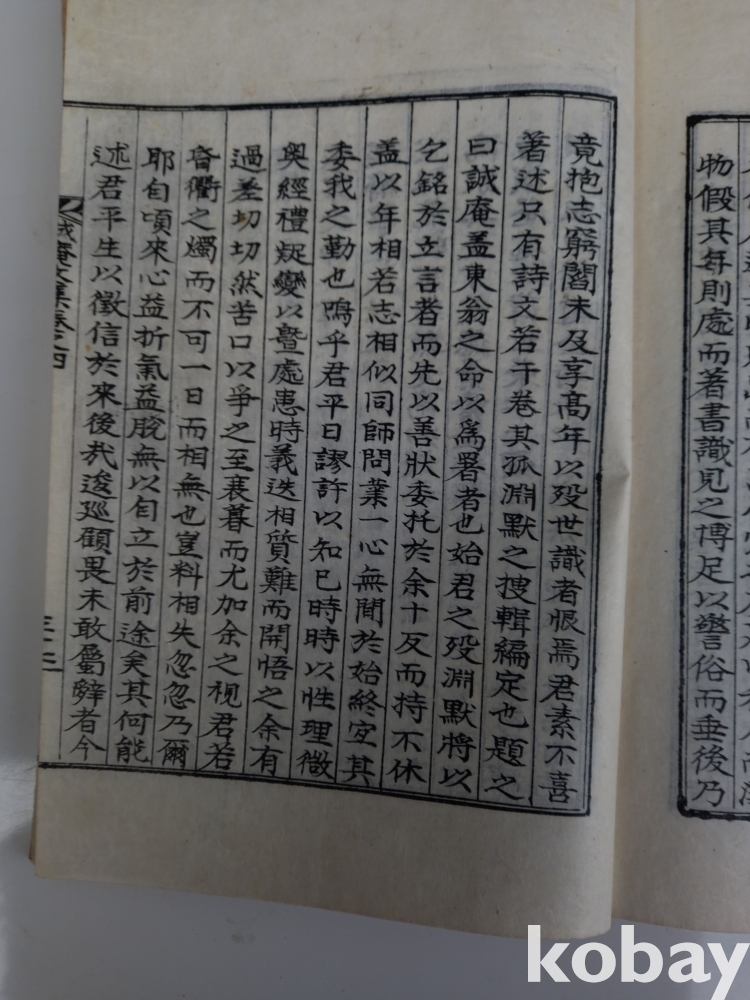 物假其年則處而著書識見之博足以訾俗而垂後乃
竟抱志窮閻未及享高年以歿世識者恨焉君素不喜
著述只有詩文若干卷其孤淵默之搜輯編定也題之
曰誠庵盖東翁之命以爲署者也始君之歿淵默將以
乞銘於立言者而先以善狀委托於余十反而持不休
盖以年相若志相似同師問業一心無間於始終宜其
委我之勤也嗚乎君平日謬許以知已時時以性理微
奥經禮疑變以曁處患時義迭相質難而開悟之余有
過差切切然苦口以爭之至衰暮而尤加余之視君若
昏衢之燭而不可一日而相無也豈料相失忽忽乃爾
耶自頃來心益折氣益脫無以自立於前途矣其何能
述君平生以徵信於來後㢤逡巡顧畏未敢屬辭者今
誠庵文集卷之四
三十三
kobay